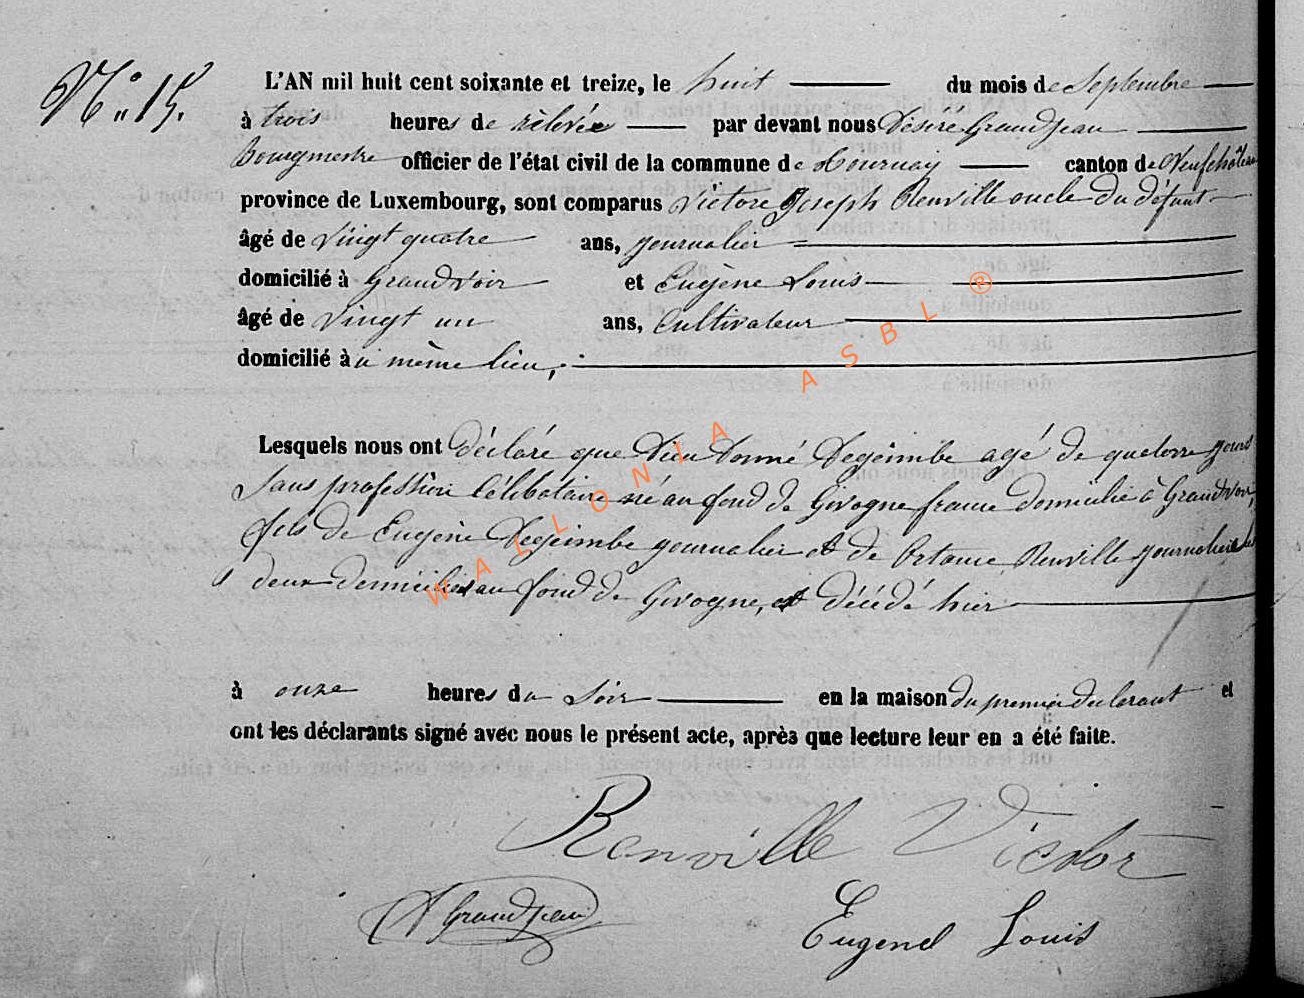 N° 15.
L'AN mil huit cent soixante et treize, le huit du mois de Septembre
à trois heures de rélevée par devant nous Désiré Grandjean
Bourgmestre officier de l'état civil de la commune de Tournay canton de Neufchâteau
province de Luxembourg, sont comparus Victore Joseph Renville oncle du défunt
âgé de vingt quatre ans, journalier
domicilié à Grandvoir et Eugène Louis
âgé de vingt un ans, Cultivateur
domicilié à u même lieu,
Lesquels nous ont déclaré que Dieudonné Degeimbe agé de quatorze jours
sans profession célibataire né au fond de Givogne france domicilié à Grandvoir,
fils de Eugène Degeimbe journalier et de Ortance Renville journalière les
deux domiciliés au fond de Givogne, est décédé hier
à onze heures du soir en la maison du premier déclarant et
ont les déclarants signé avec nous le présent acte, après que lecture leur en a été faite.
Renville Victor
Grandjean
Eugene Louis
WALLONIA ASBL ®